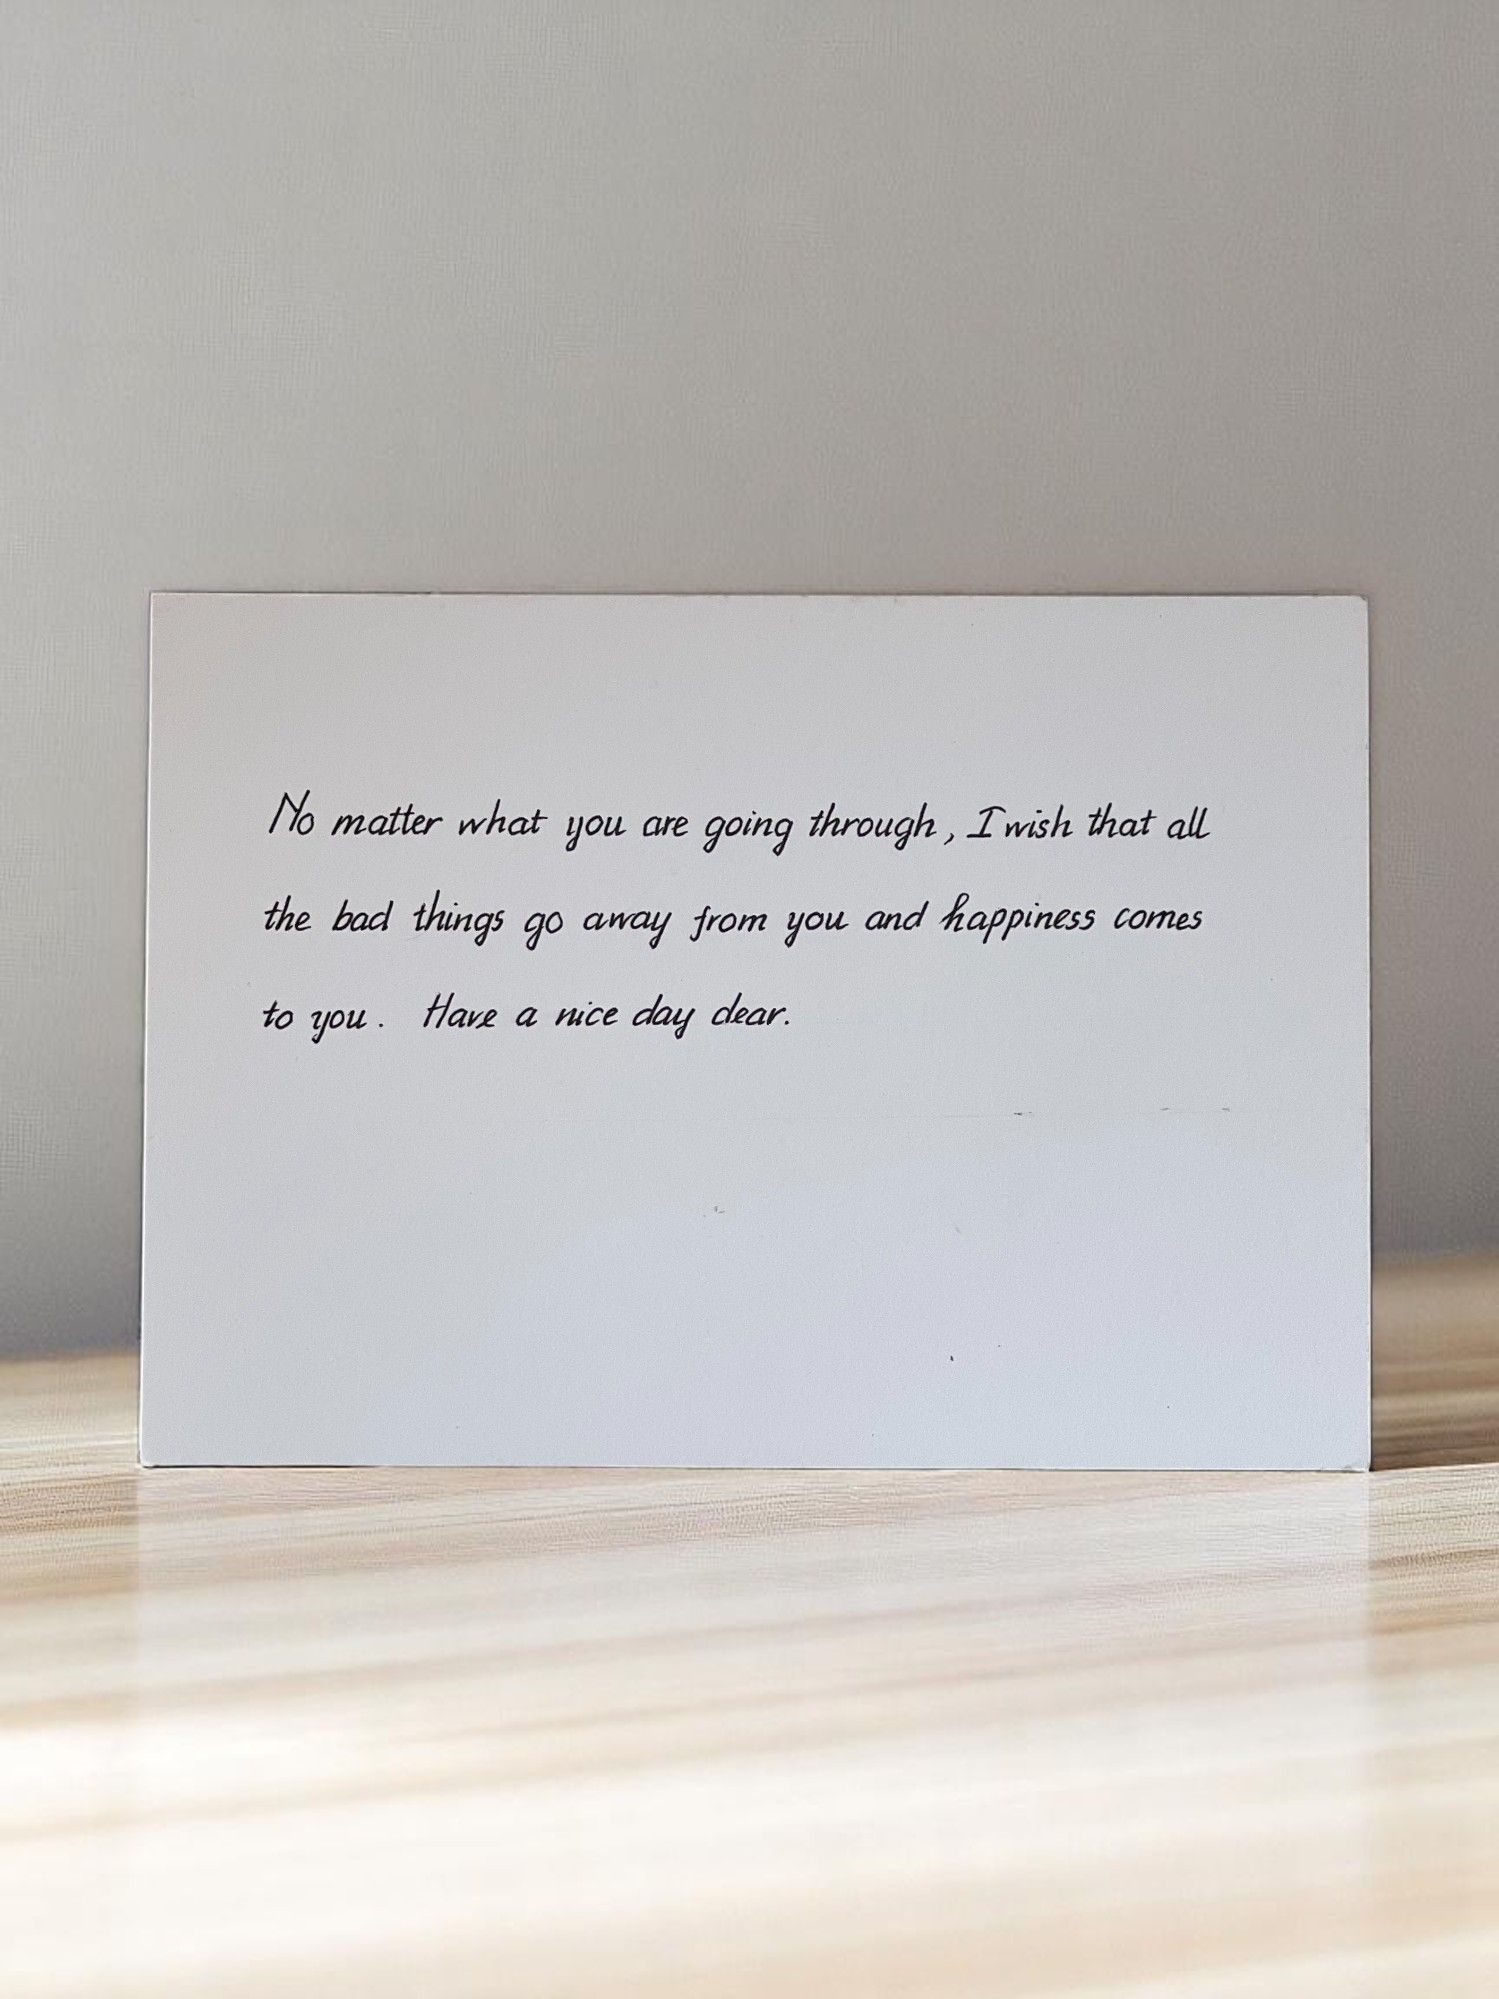 No matter what you are going through, I wish that all
the bad things go away from you and happiness comes
to you. Have a nice day dear.